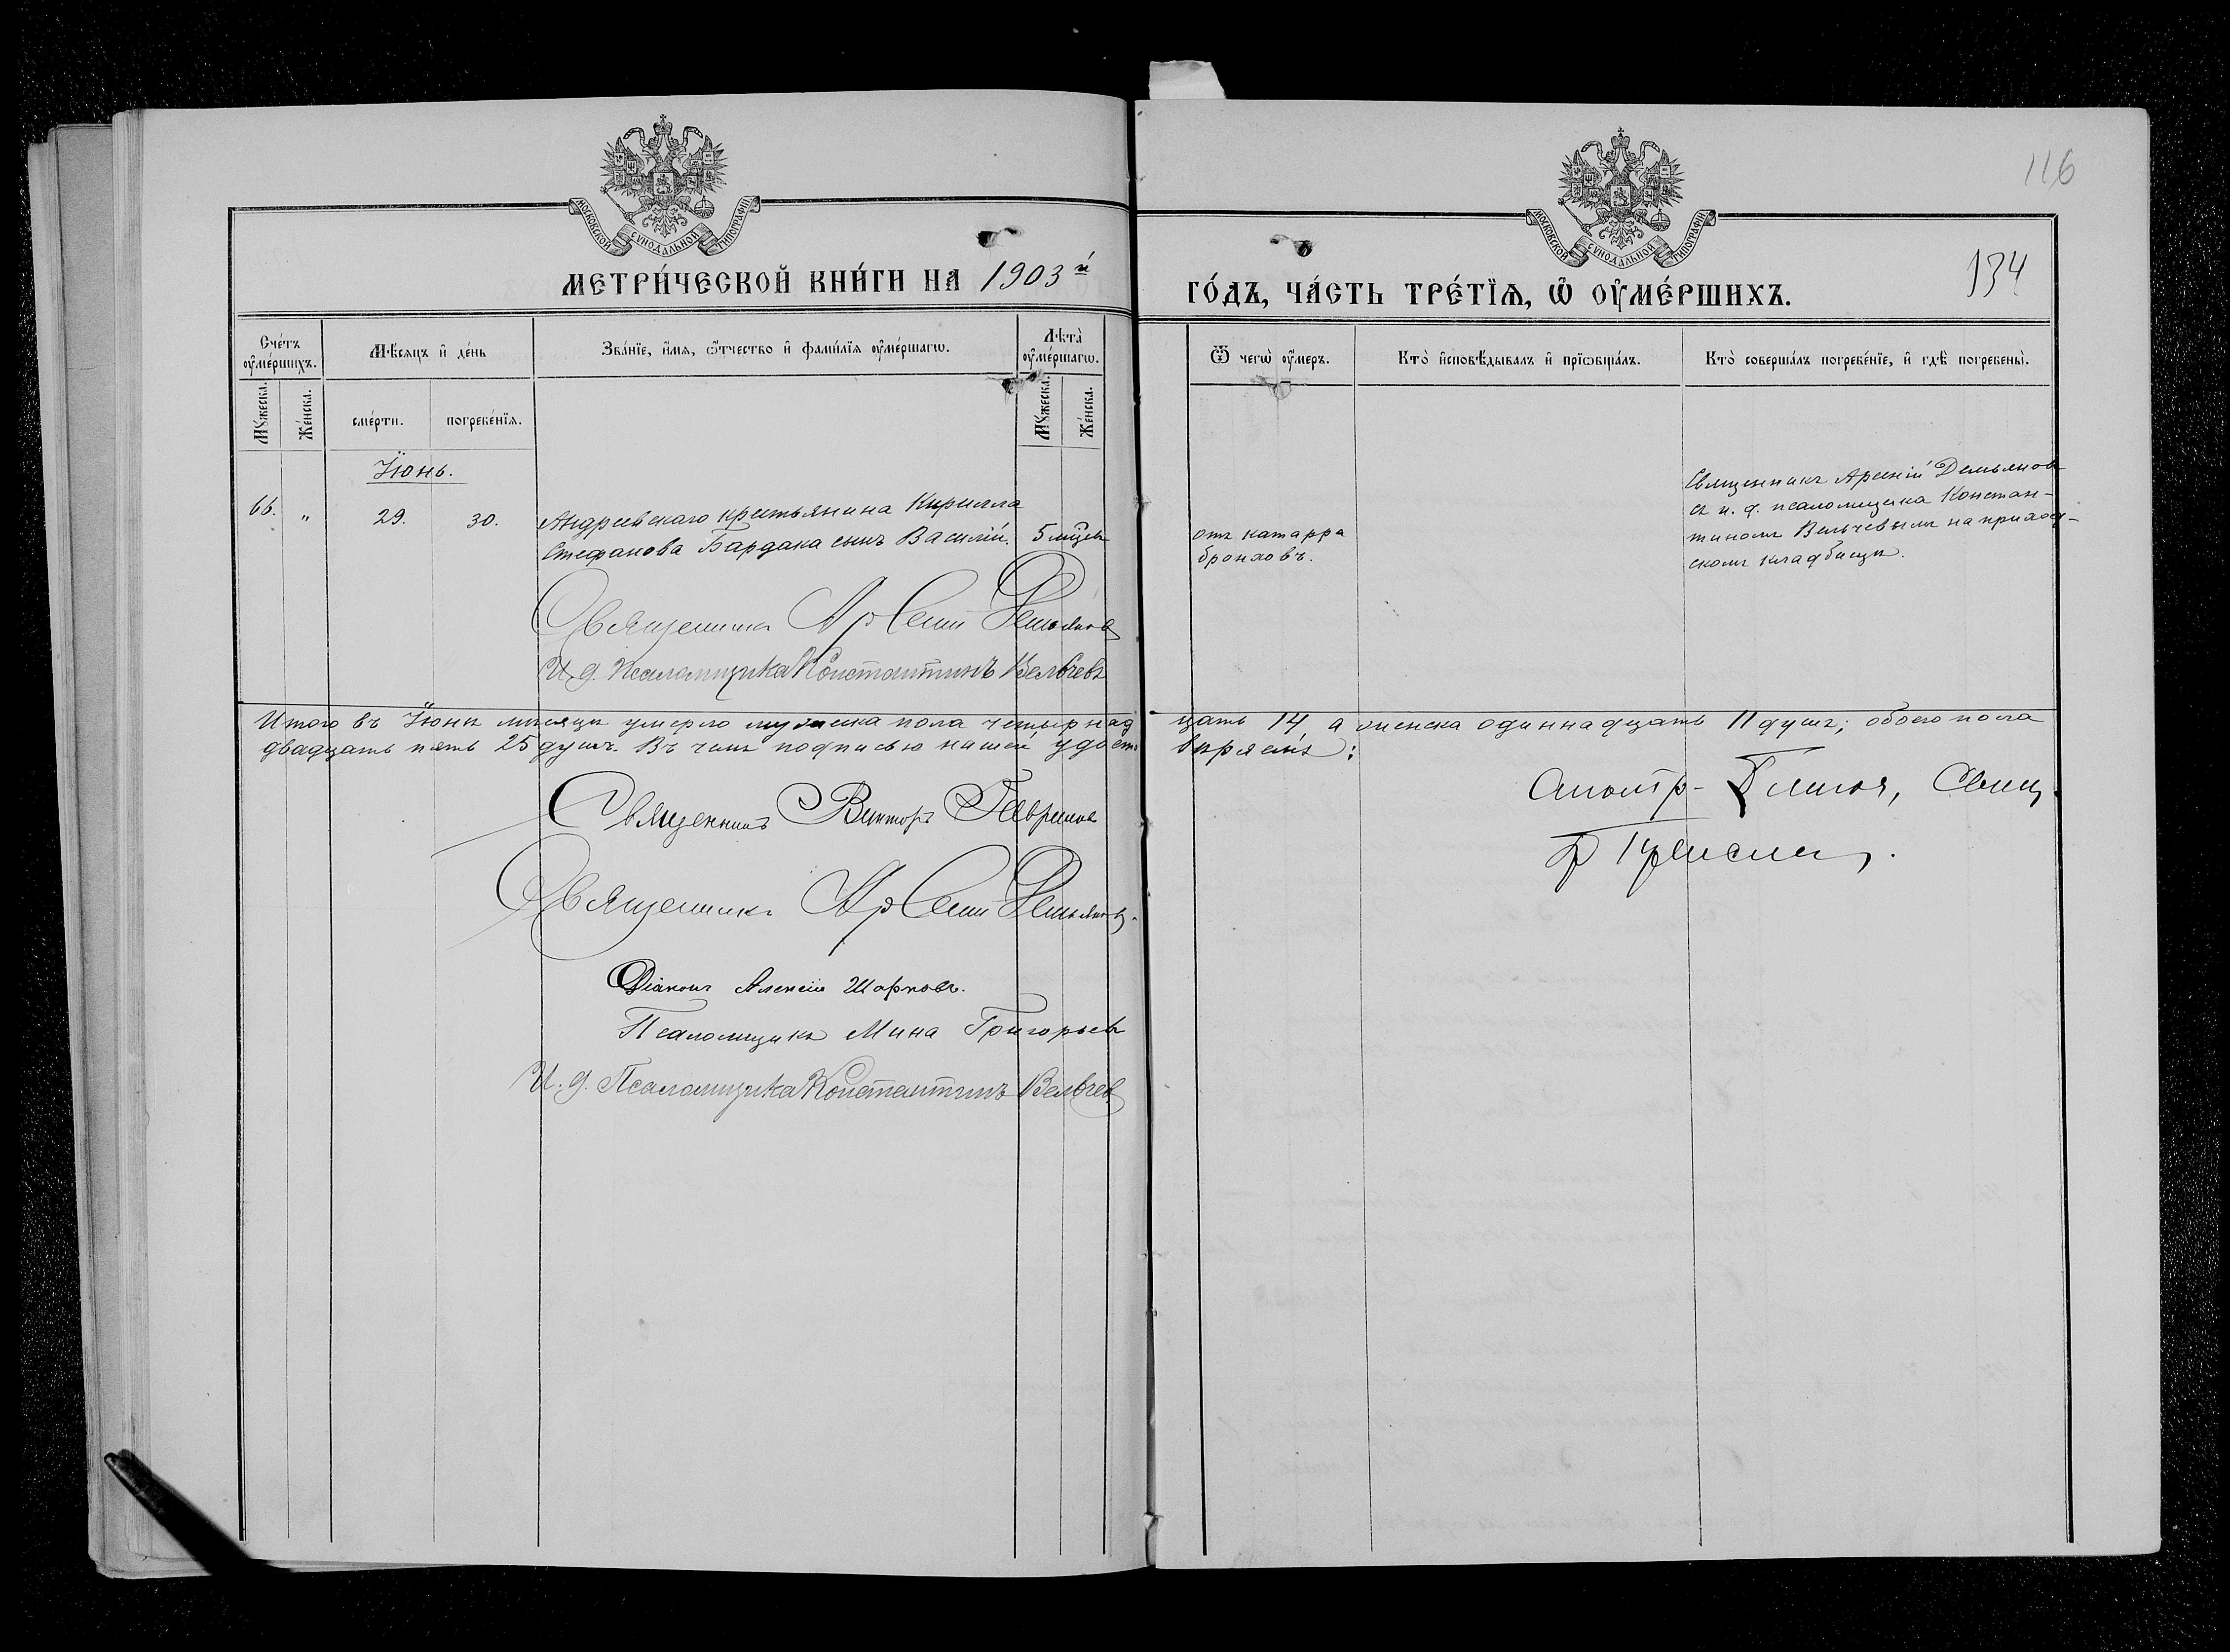 116
МОСКОВСКОЙ СѴНОДАЛЬНОЙ ТИПОГРАФІИ
МОСКОВСКОЙ СѴНОДАЛЬНОЙ ТИПОГРАФІИ
134
МЕТРИ́ЧЕСКОЙ КНИ́ГИ НА 1903й
ГО́ДЪ, ЧА́СТЬ ТРЕ́ТЇѦ, Ѡ҆ ОУ҆МЕ́РШИХЪ.
Сче́тъ оу҆ме́ршихъ.
Мѣ́сѧцъ и҆ де́нь
Зва́нїе, и҆́мѧ, ѻ҆́тчество и҆ фами́лїѧ оу҆ме́ршагѡ.
Лѣ́та оу҆ме́ршагѡ.
Ѿ чегѡ̀ оу҆́меръ.
Кто̀ и҆сповѣ́дывалъ и҆ прїѡбща́лъ.
Кто̀ соверша́лъ погребе́нїе, и҆ гдѣ̀ погребены̀.
Мꙋ́жеска.
Же́нска.
сме́рти.
погребе́нїѧ.
Мꙋ́жеска.
Же́нска.
Іюнь.
66.
"
29.
30.
Андреевскаго крестьянина Кирилла
Стефанова Бардака сынъ Василій.
5 мѣсяц
отъ катарра
бронховъ.
Священникъ Арсеній Демьянов
съ и. д. псаломщика Констан-
тиномъ Вельчевымъ на приход-
скомъ кладбищѣ.
Священникъ Арсеній Демьянов
И. д. Псаломщика Константинъ Вельчевъ
Итого въ Іюнѣ мѣсяцѣ умерло мужеска пола четырнад цать 14, а женска одиннадцать 11 душъ; обоего пола
двадцать пять 25 душъ. Въ чемъ подписью нашей удосто вѣряемъ:
Священникъ Викторъ Гаврилов
Священникъ Арсеній Демьяновъ.
Діаконъ Алексій Шарковъ.
Псаломщикъ Мина Григорьевъ
И. д. Псаломщика Константинъ Вельчев
Свящ.